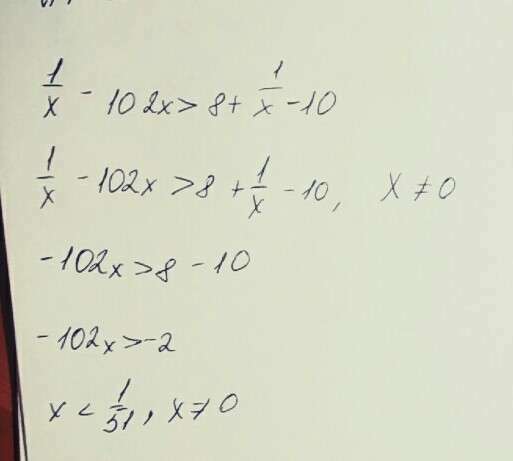 1/x - 102x > 8 + 1/x - 10
1/x - 102x > 8 + 1/x - 10, x ≠ 0
-102x > 8 - 10
-102x > -2
x < 1/51, x ≠ 0